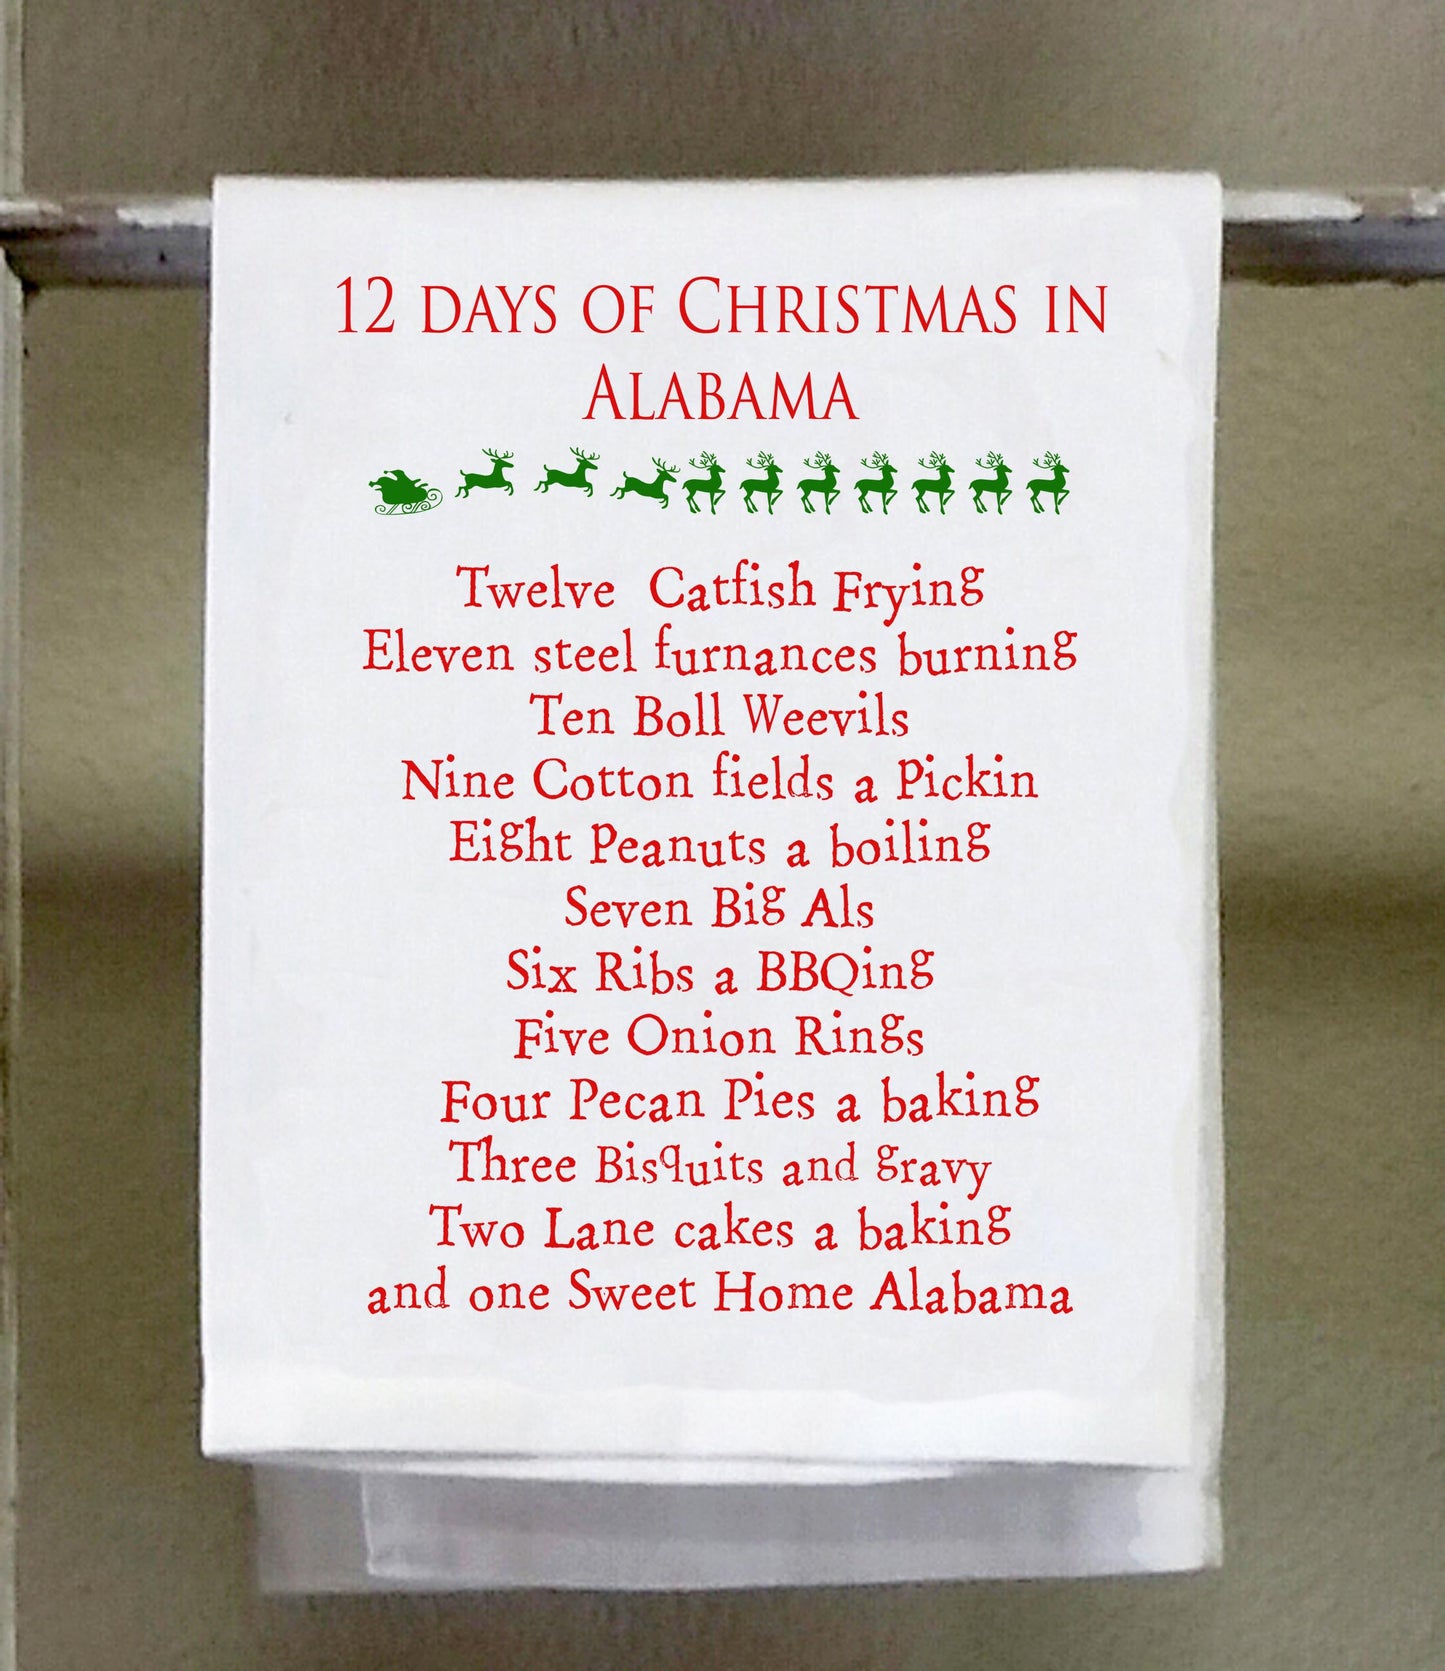 12 DAYS OF CHRISTMAS IN
ALABAMA
Twelve Catfish Frying
Eleven steel furnances burning
Ten Boll Weevils
Nine Cotton fields a Pickin
Eight Peanuts a boiling
Seven Big Als
Six Ribs a BBQing
Five Onion Rings
Four Pecan Pies a baking
Three Bisquits and gravy
Two Lane cakes a baking
and one Sweet Home Alabama